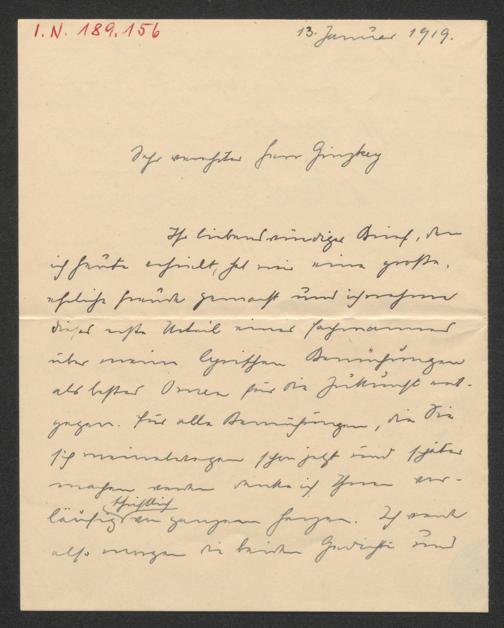 I.N. 189.156
13. Januar 1919.
Sehr verehrter Herr Ginzkey
Ihr liebenswürdiger Brief, den
ich heute erhielt, hat mir eine große,
ehrliche Freude gemacht und ich nehme
dieses erste Urteil eines Fachmannes
über meine lyrischen Bemühungen
als bestes Omen für die Zukunft ent-
gegen. Für alle Bemühungen, die Sie
sich meinetwegen schon jetzt und später
machen werden danke ich Ihnen vor-
läufig schriftlich von ganzem Herzen. Ich werde
also morgen die beiden Gedichte und